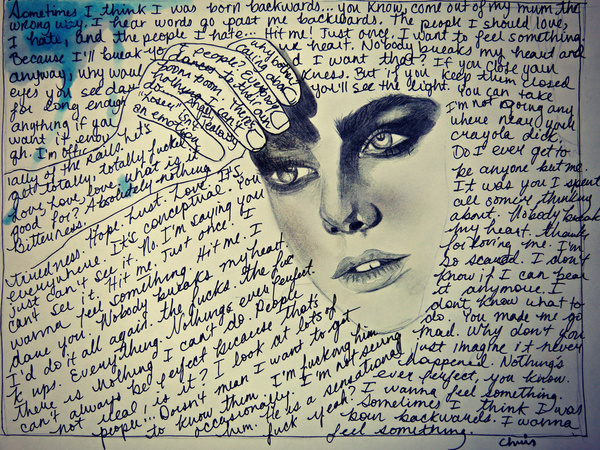 Sometimes I think I was born backwards... you know, come out of my mum the
wrong way. I hear words go past me backwards. The people I should love,
I hate, and the people I hate... Hit me! Just once. I want to feel something.
Because I'll break your heart. Nobody breaks my heart and
anyway, why would I want that? If you close your
eyes you see darkness. But if you keep them closed
for long enough you'll see the light. You can take
anything if you
want it enou
gh. I'm offic
ially off the rails. Let's
get totally, totally fucked.
Love, love, love, what is it
good for? Absolutely nothing
Bitterness.
why bother
calling does
people? Everybody
dances to their own
boom boom. There's
nothing I can't do.
Anger. Jealousy
"Loser" isn't really
an emotion
I'm not going any
where near your
crayola dick.
Do I ever get to
be anyone but me.
It was you I spent
all somine thinking
about. Nobody breaks
my heart. thanks
for loving me. I'm
so scared. I don't
know if I can bear
it anymore. I
don't know what to
do. You made me go
mad. Why don't you
just imagine it never
happened. Nothing's
ever perfect, you know.
I wanna feel something.
Sometimes I think I was
born backwards. I wanna
feel something.
tiredness. Hope. Lust. Love. It's
everywhere. It's conceptual. You
just can't see it. No. I'm saying you
can't see it. Hit me. Just once. I
wanna feel something. Hit me. I
dare you. Nobody breaks my heart.
I'd do it all again. the fucks. the fuc
k ups. Everything. Nothings ever perfect.
there is nothing I can't do. People
can't always be perfect because that's
not ideal is it? I look at lots of
people!.. Doesn't mean I want to get
to know them. I'm fucking him
occasionally. I'm not seeing
him. He is a sensational
fuck yeah?
chris